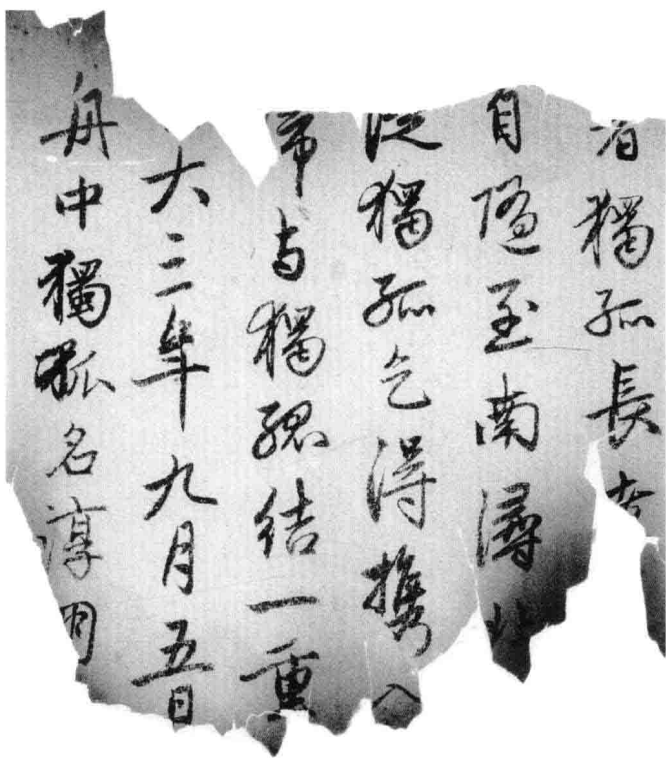 獨孤長
自隨至南潯
從獨孤乞得攜入
与獨孤結一重
大三年九月五日
舟中獨孤名淳朋